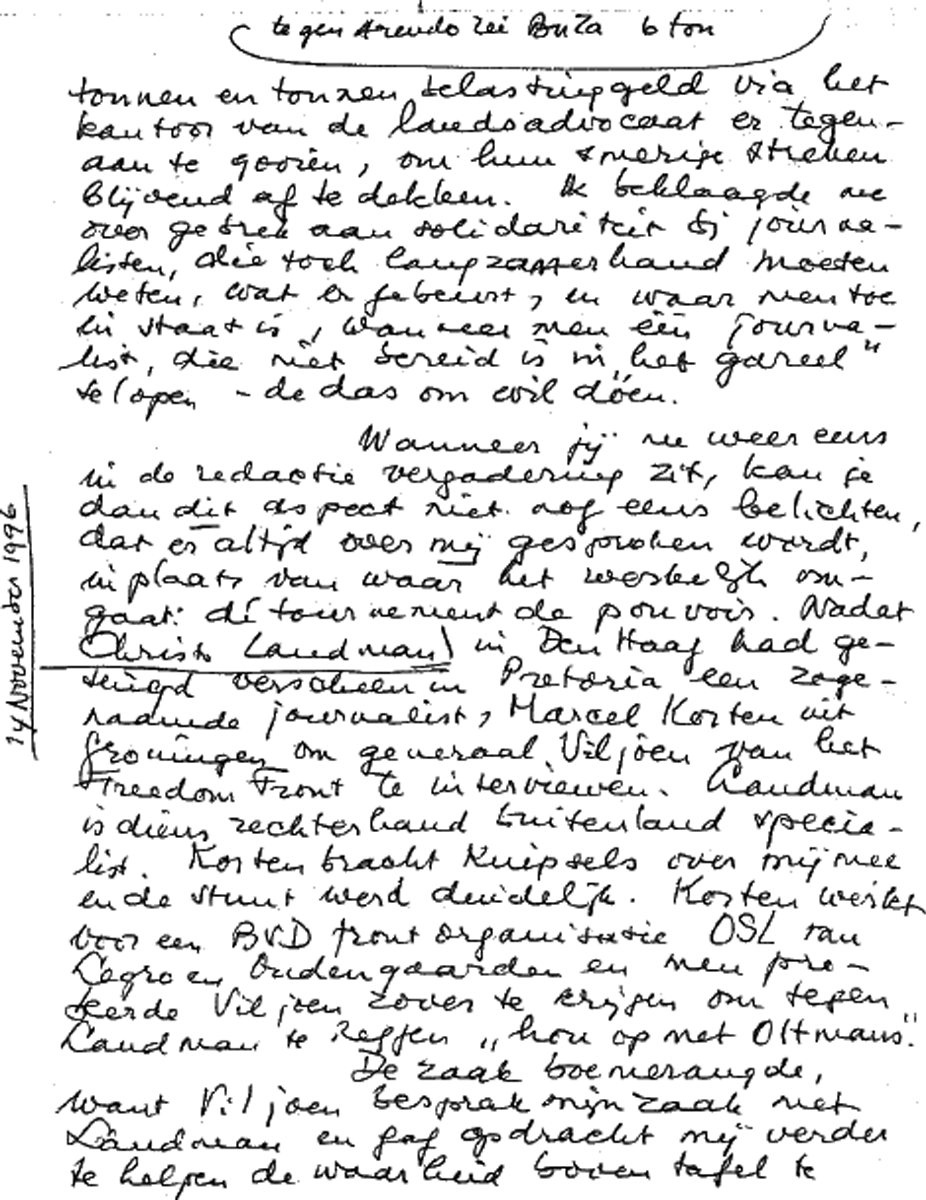 tegen Arendo zei BuZa 6 ton
tonnen en tonnen belastinggeld via het
kantoor van de landsadvocaat er tegen-
aan te gooien, om hun smerige streken
blijvend af te dekken. Ik beklaagde me
over gebrek aan solidariteit bij journa-
listen, die toch langzamerhand moeten
weten, wat er gebeurt, en waar men toe
in staat is, wanneer men één journa-
list, die niet bereid is in „het gareel"
te lopen - de das om wil doen.
Wanneer jij nu weer eens
in de redactie vergadering zit, kan je
dan dit aspect niet nog eens belichten,
dat er altijd over mij gesproken wordt,
in plaats van waar het werkelijk om-
gaat: détournement de pouvoir. Nadat
Christo Landman) in Den Haag had ge-
tuigd verscheen in Pretoria een zoge-
naamde journalist, Marcel Korten uit
Groningen om generaal Viljoen van het
Freedom Front te interviewen. Landman
is diens rechterhand buitenland specia-
list. Korten bracht knipsels over mij mee
en de stunt werd duidelijk. Korten werkt
voor een BVD frontorganisatie OSL van
Legro en Oudengaarden en men pro-
beerde Viljoen zover te krijgen om tegen
Landman te zeggen „hou op met Oltmans".
De zaak boemerangde,
want Viljoen besprak mijn zaak met
Landman en gaf opdracht mij verder
te helpen de waarheid boven tafel te
14 November 1996